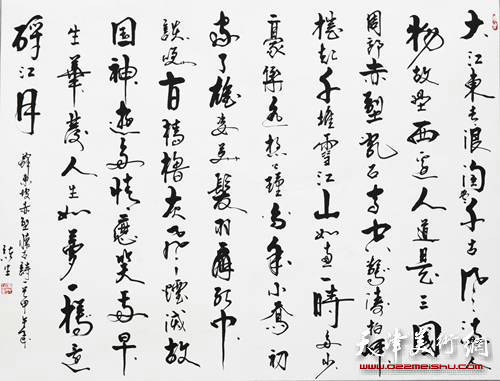 大江東去浪淘盡千古風流人
物故壘西邊人道是三國
周郎赤壁亂石穿空驚濤拍岸
捲起千堆雪江山如畫一時多少
豪傑遙想公瑾當年小喬初
嫁了雄姿英發羽扇綸巾
談笑間檣櫓灰飛煙滅故
國神遊多情應笑我早
生華髮人生如夢一樽還
酹江月
蘇東坡赤壁懷古詩一首甲午年
天津美术网
www.022meishu.com